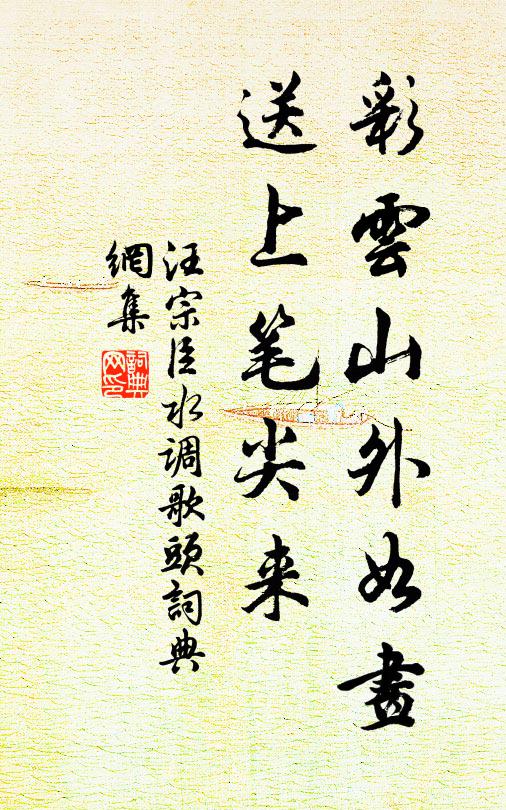 彩雲山外如畫
送上笔尖来
汪宗臣水调歌頭詞典
網集
詞典
网印